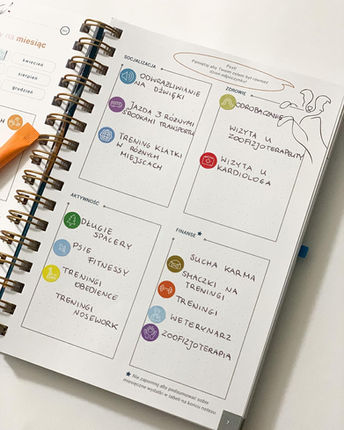 na miesiąc
kwiecień
sierpień
grudzień
Psst!
Pamiętaj aby Twoim celem był również
dzień odpoczynku!
SOCJALIZACJA
ODWRAŻLIWIANIE
NA DŹWIĘKI
JAZDA RÓŻNYMI
ŚRODKAMI TRANSPORTU
TRENING KLATKI
W RÓŻNYCH
MIEJSCACH
ZDROWIE
ODROBACZANIE
WIZYTA U
ZOOFIZJOTERAPEUTY
WIZYTA U
KARDIOLOGA
AKTYWNOŚĆ
DŁUGIE
SPACERY
PSIE
FITNESSY
TRENINGI
OBEDIENCE
TRENINGI
NOSEWORK
FINANSE
SUCHA KARMA
SMACZKI NA
TRENINGI
TRENINGI
WETERYNARZ
ZOOFIZJOTERAPIA
Nie zapomnij aby podsumować sobie
miesięczne wydatki w tabeli na końcu notesu
7